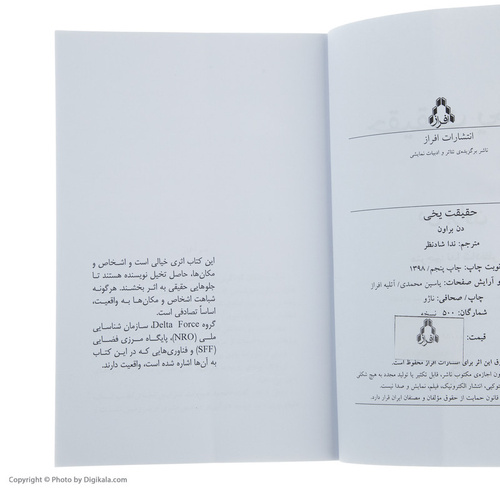 افراز
انتشارات افراز
ناشر برگزیده‌ی تئاتر و ادبیات نمایشی
حقیقت یخی
دن براون
مترجم: ندا شادنظر
نوبت چاپ: چاپ پنجم/ ۱۳۹۸
و آرایش صفحات: یاسین محمدی/ آتلیه افراز
چاپ/ صحافی: ناژو
شمارگان: ۵۰۰ نسخه
قیمت:
افراز
ق این اثر برای انتشارات افراز محفوظ است.
ون اجازه‌ی مکتوب ناشر، قابل تکثیر یا تولید مجدد به هیچ شکلی
توکپی، انتشار الکترونیک، فیلم، نمایش و صدا نیست.
قانون حمایت از حقوق مؤلفان و مصنفان ایران قرار دارد.
این کتاب اثری خیالی است و اشخاص و
مکان‌ها، حاصل تخیل نویسنده هستند تا
جلوهایی حقیقی به اثر بخشند. هرگونه
شباهت اشخاص و مکان‌ها به واقعیت،
اساساً تصادفی است.
گروه Delta Force، سازمان شناسایی
ملی (NRO)، پایگاه مرزی فضایی
(SFF) و فناوری‌هایی که در این کتاب
به آن‌ها اشاره شده است، واقعیت دارند.
Copyright © Photo by Digikala.com